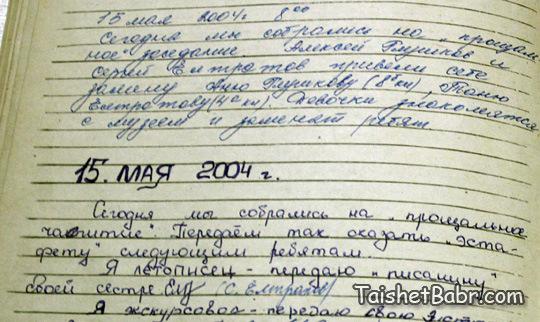 15 мая 2004г. 8⁰⁰
Сегодня мы собрались на „прощаль
ное" заседание. Алексей Глушков и
Сергей Елтратов привели себе
замену Аню Глушкову (8 кл), Таню
Елтратову (4 кл). Девочки знакомятся
с музеем и заменят ребят
15. МАЯ 2004 г.
Сегодня мы собрались на „прощальное
чаепитие". Передаём так сказать „эста-
фету" следующим ребятам.
Я летописец - передаю „писанину"
своей сестре (С. Елтратов)
Я экскурсовод - передаю свою
TaishetBabr.com